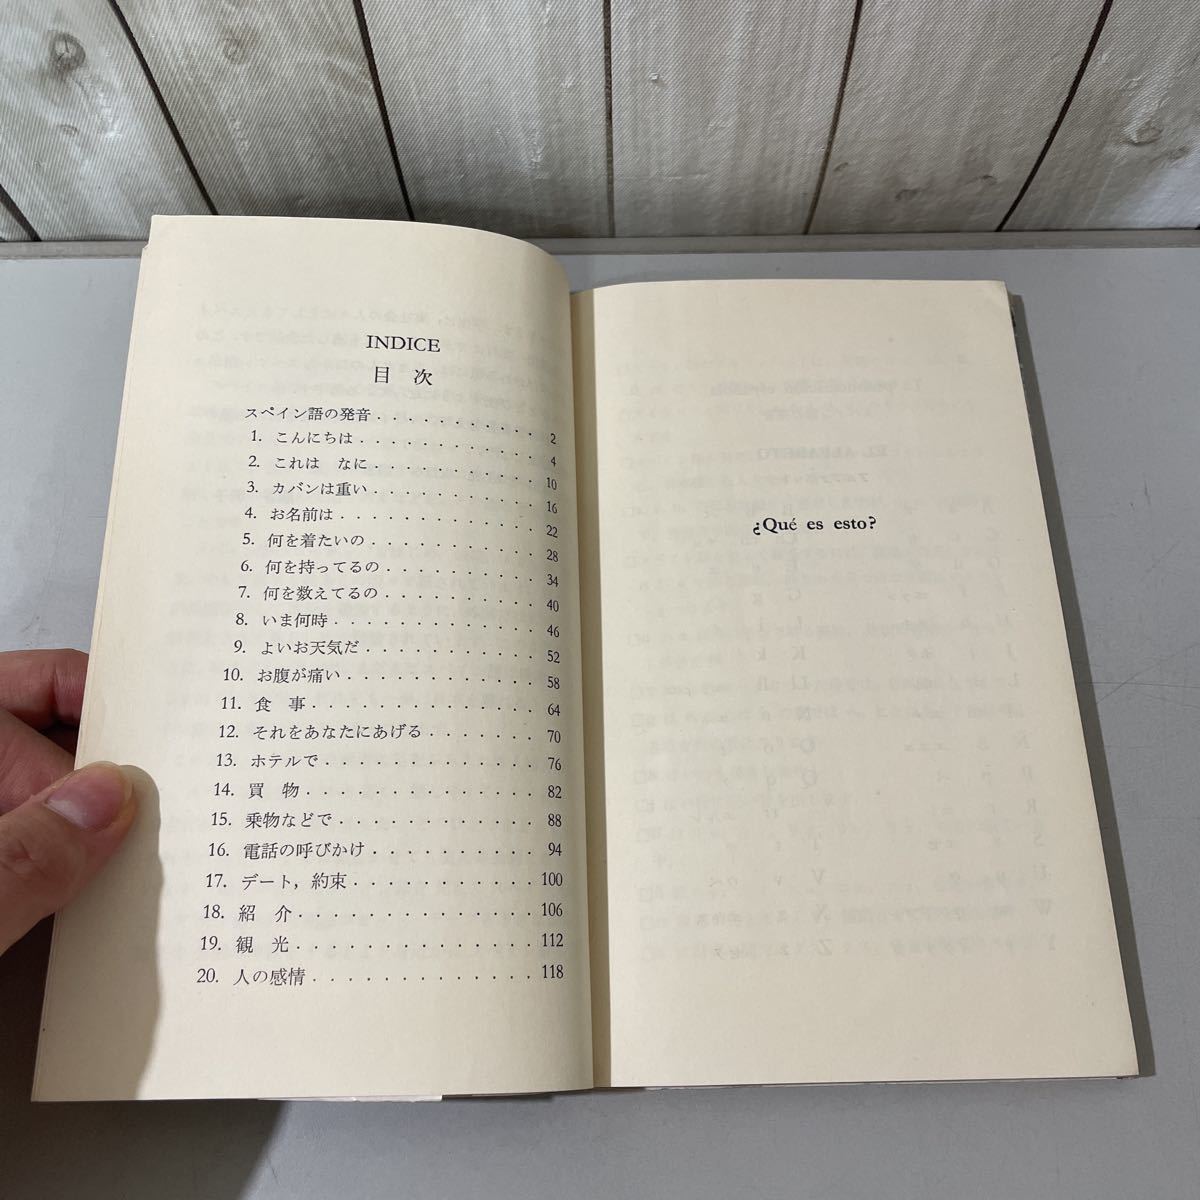 INDICE
目 次
スペイン語の発音 . . . . . . . . . . . 2
1. こんにちは . . . . . . . . . . . . 4
2. これは なに . . . . . . . . . . . 10
3. カバンは重い . . . . . . . . . . . 16
4. お名前は . . . . . . . . . . . . . 22
5. 何を着たいの . . . . . . . . . . . 28
6. 何を持ってるの . . . . . . . . . . 34
7. 何を数えてるの . . . . . . . . . . 40
8. いま何時 . . . . . . . . . . . . . 46
9. よいお天気だ . . . . . . . . . . . 52
10. お腹が痛い . . . . . . . . . . . . 58
11. 食 事 . . . . . . . . . . . . . . 64
12. それをあなたにあげる . . . . . . . 70
13. ホテルで . . . . . . . . . . . . . 76
14. 買 物 . . . . . . . . . . . . . . 82
15. 乗物などで . . . . . . . . . . . . 88
16. 電話の呼びかけ . . . . . . . . . . 94
17. デート，約束 . . . . . . . . . . . 100
18. 紹 介 . . . . . . . . . . . . . . 106
19. 観 光 . . . . . . . . . . . . . . 112
20. 人の感情 . . . . . . . . . . . . . 118
¿Qué es esto?